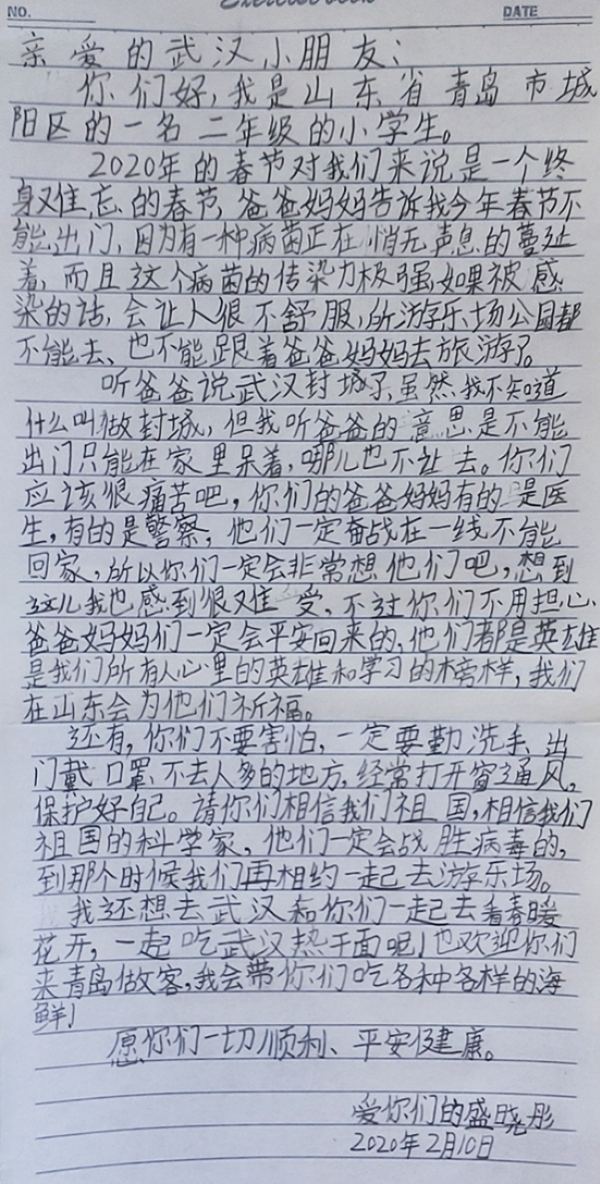 NO.
DATE
亲爱的武汉小朋友:
你们好,我是山东省青岛市城
阳区的一名二年级的小学生。
2020年的春节对我们来说是一个终
身难忘的春节,爸爸妈妈告诉我今年春节不
能出门,因为有一种病菌正在悄无声息的蔓延
着,而且这个病菌的传染力极强,如果被感
染的话,会让人很不舒服,所游乐场公园都
不能去、也不能跟着爸爸妈妈去旅游了。
听爸爸说武汉封城了,虽然我不知道
什么叫做封城,但我听爸爸的意思是不能
出门只能在家里呆着,哪儿也不让去。你们
应该很痛苦吧,你们的爸爸妈妈有的是医
生,有的是警察,他们一定奋战在一线不能
回家,所以你们一定会非常想他们吧,想到
这儿我也感到很难受,不过你们不用担心,
爸爸妈妈们一定会平安回来的,他们都是英雄
是我们所有人心里的英雄和学习的榜样,我们
在山东会为他们祈福。
还有,你们不要害怕,一定要勤洗手、出
门戴口罩、不去人多的地方,经常打开窗通风,
保护好自己。请你们相信我们祖国,相信我们
祖国的科学家,他们一定会战胜病毒的,
到那个时候我们再相约一起去游乐场。
我还想去武汉和你们一起去看春暖
花开,一起吃武汉热干面呢!也欢迎你们
来青岛做客,我会带你们吃各种各样的海
鲜!
愿你们一切顺利、平安健康。
爱你们的盛晓彤
2020年2月10日